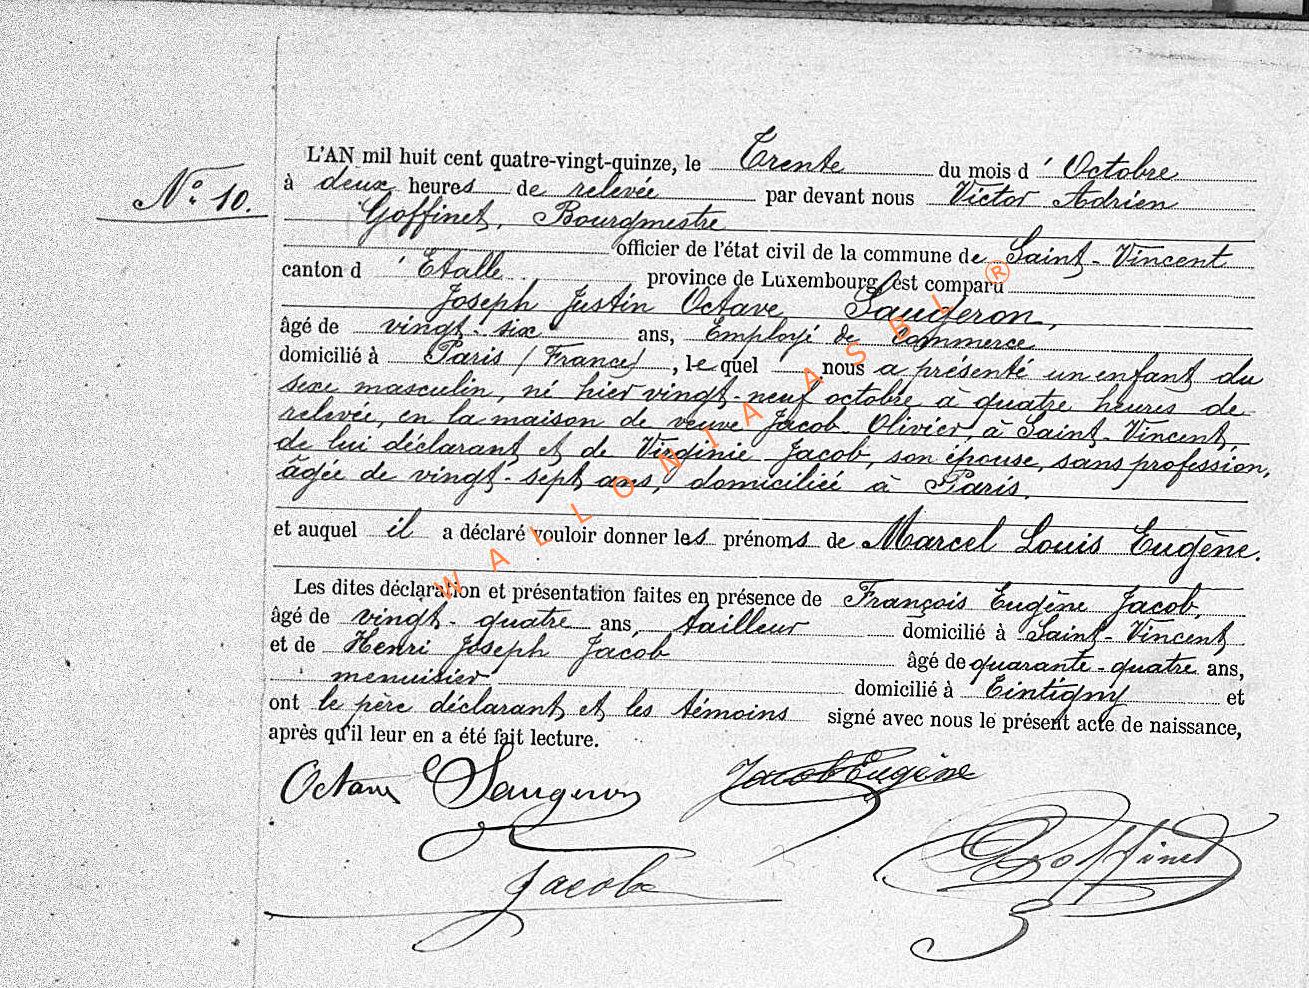 N° 10.
L'AN mil huit cent quatre-vingt-quinze, le Trente du mois d' Octobre
à deux heures de relevée par devant nous Victor Adrien
Goffinet, Bourgmestre
officier de l'état civil de la commune de Saint-Vincent
canton d' Etalle province de Luxembourg, est comparu
Joseph Justin Octave Saugeron,
âgé de vingt-six ans, Employé de Commerce
domicilié à Paris (France), lequel nous a présenté un enfant du
sexe masculin, né hier vingt-neuf octobre à quatre heures de
relevée, en la maison de veuve Jacob Olivier, à Saint-Vincent,
de lui déclarant et de Virginie Jacob, son épouse, sans profession,
âgée de vingt-sept ans, domiciliée à Paris.
et auquel il a déclaré vouloir donner les prénoms de Marcel Louis Eugène.
Les dites déclaration et présentation faites en présence de François Eugène Jacob,
âgé de vingt-quatre ans, tailleur domicilié à Saint-Vincent
et de Henri Joseph Jacob âgé de quarante-quatre ans,
menuisier domicilié à Tintigny et
ont le père déclarant et les témoins signé avec nous le présent acte de naissance,
après qu'il leur en a été fait lecture.
Octave Saugeron Jacob Eugène
Goffinet
Jacob
WALLONIA ASBL ®